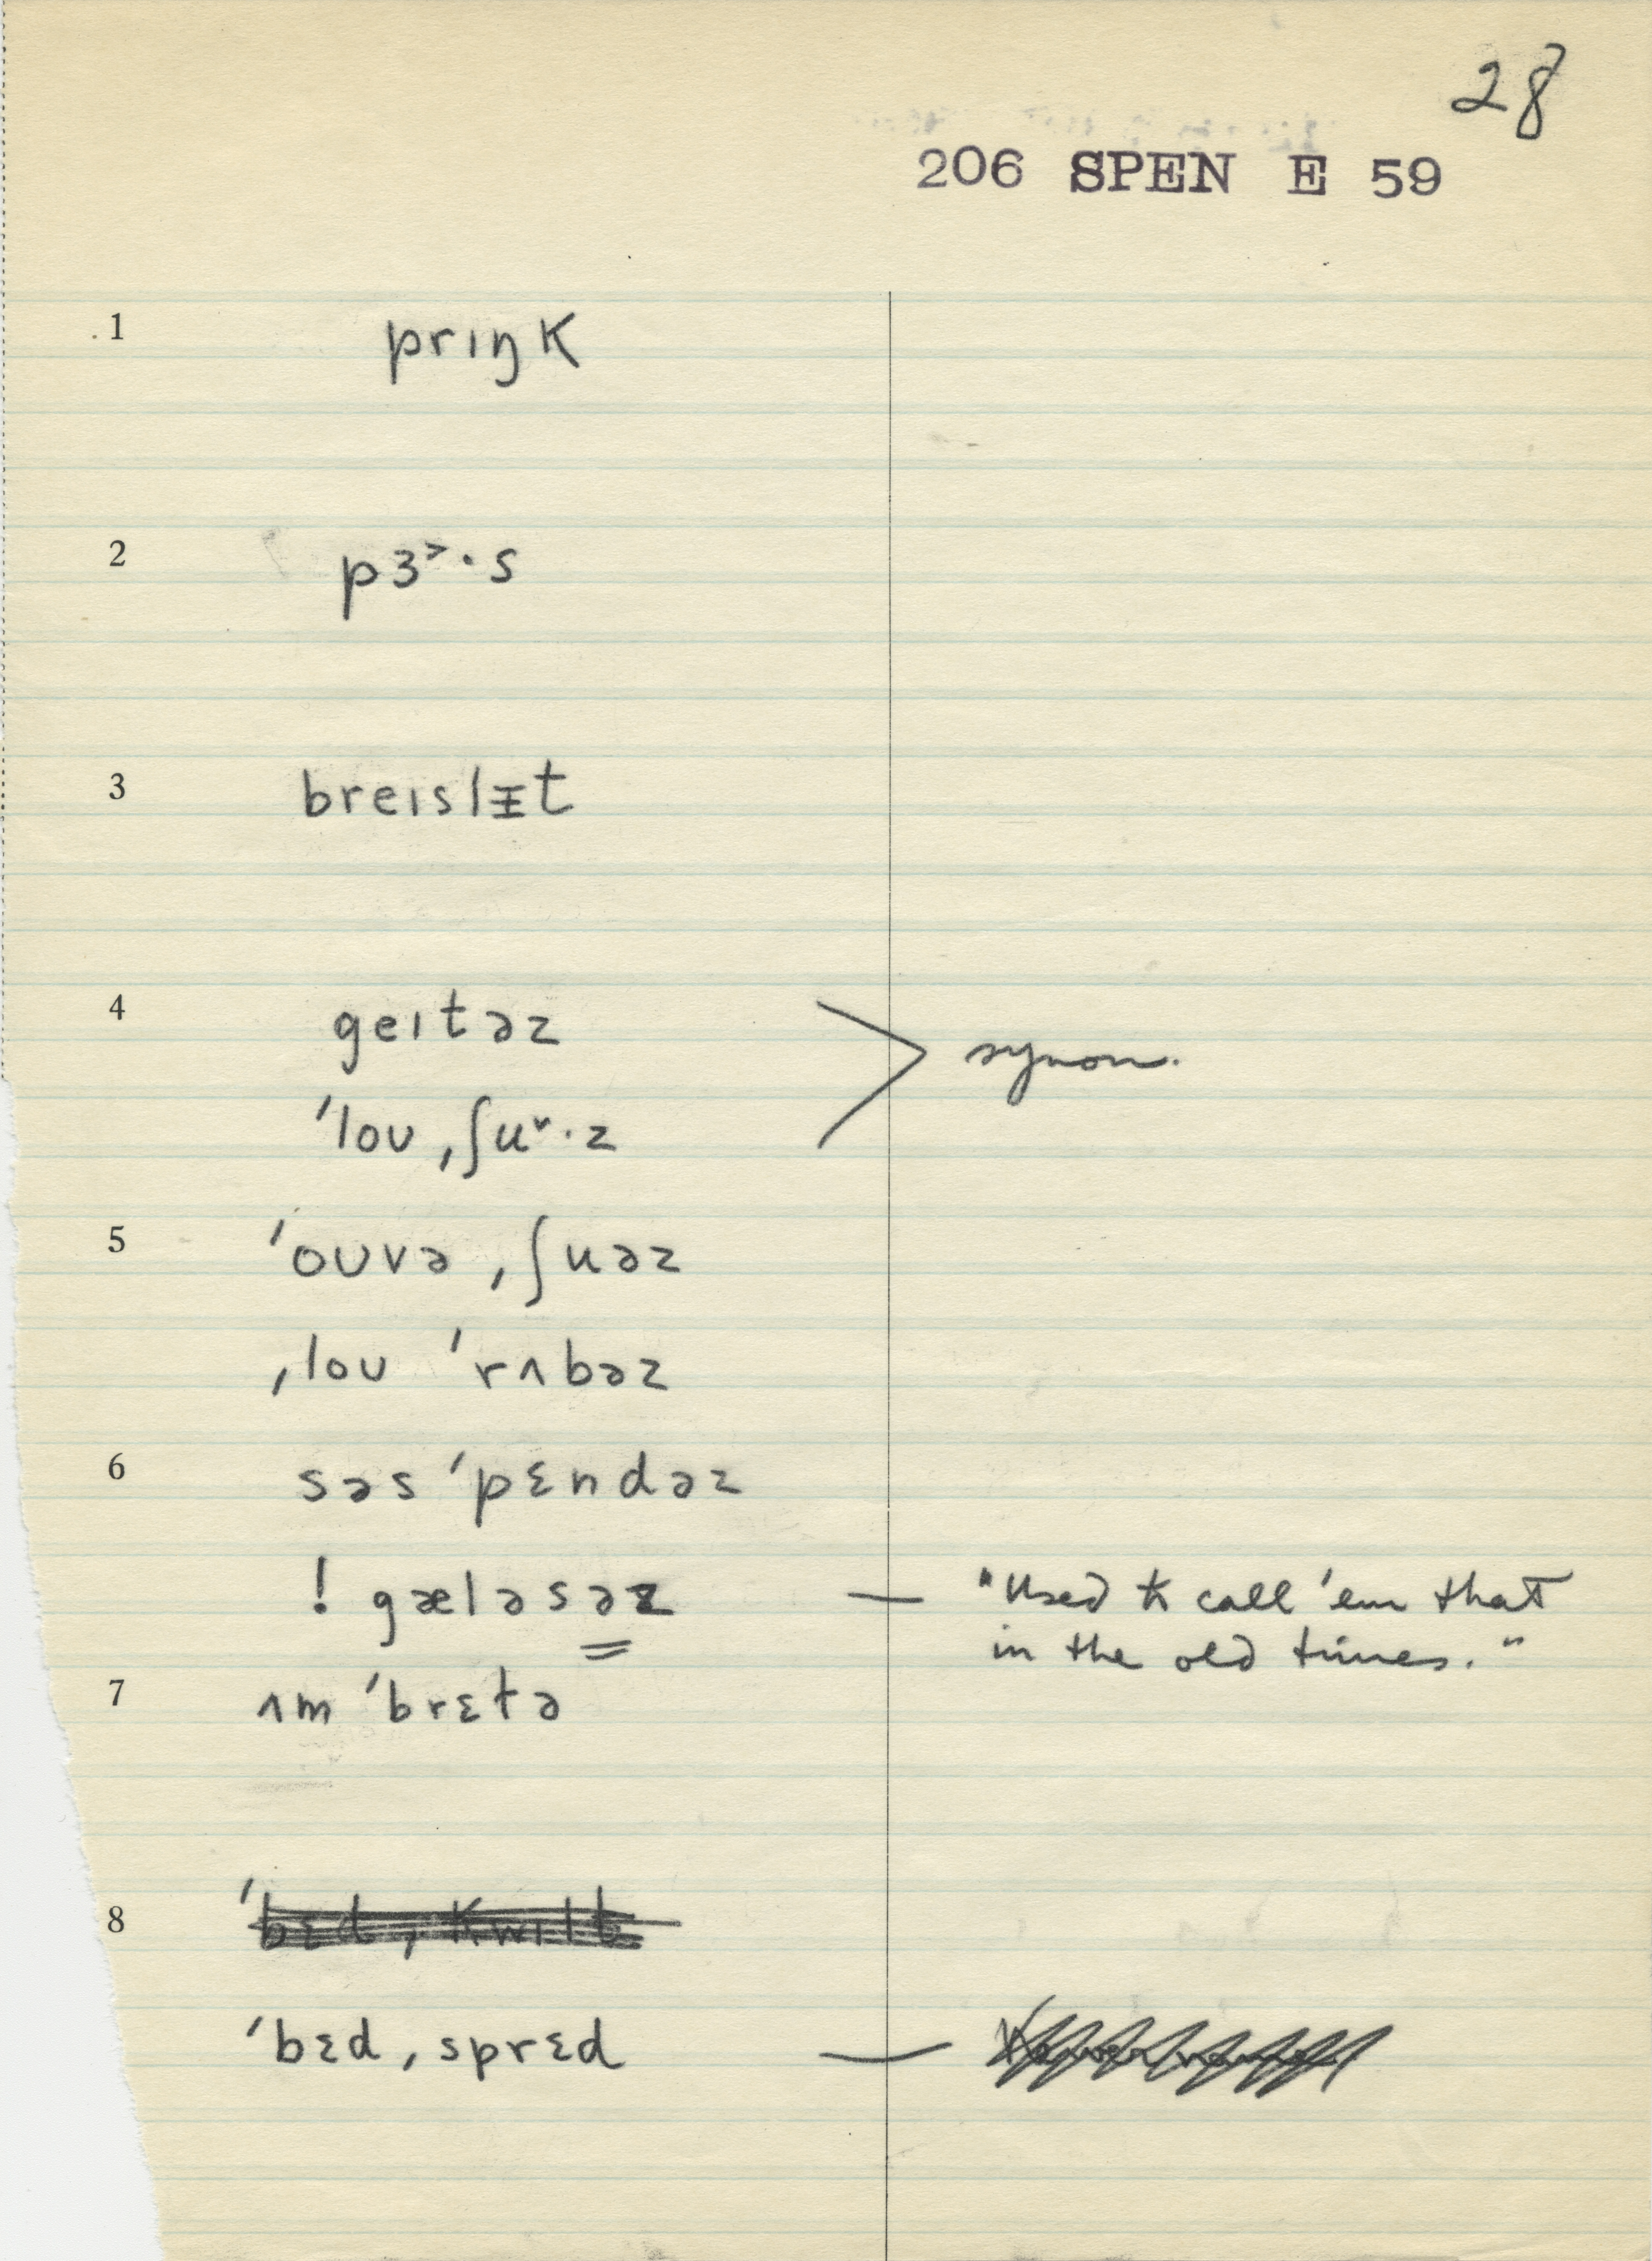 28
206 SPEN E 59
1 prɪŋk
2 pɜ˃·s
3 breɪslᵻt
4 geɪtəz
ˈloʊˌʃu˅·z
synon.
5 ˈoʊvəˌʃuəz
ˌloʊ ˈrʌbəz
6 səsˈpɛndəz
! gæləsəz — "Used to call 'em that
in the old times."
7 ʌmˈbrɛtə
8 ˈbɛdˌkwɪlt
ˈbɛdˌsprɛd —